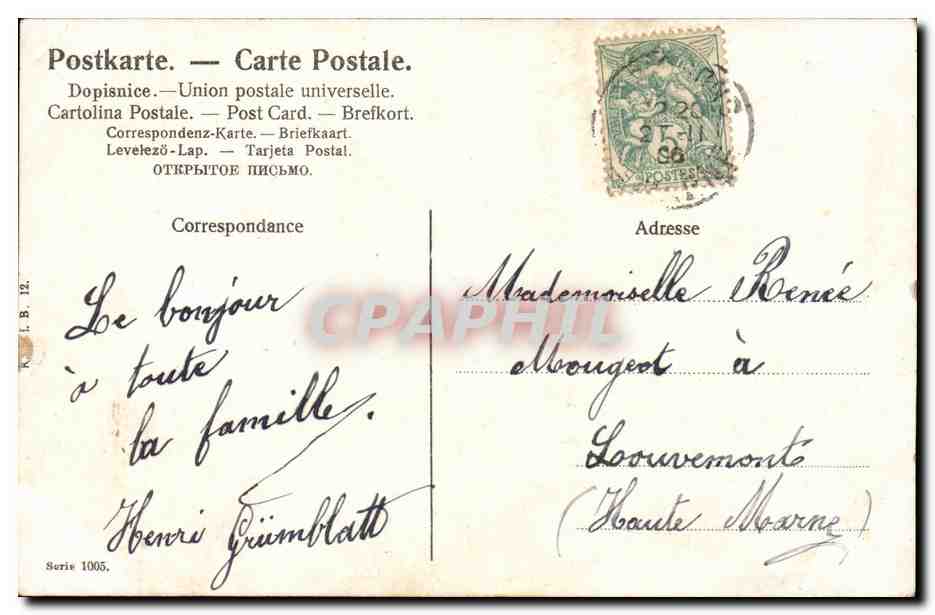 Postkarte. — Carte Postale.
Dopisnice.—Union postale universelle.
Cartolina Postale. — Post Card. — Brefkort.
Correspondenz-Karte. — Briefkaart.
Levelező-Lap. — Tarjeta Postal.
ОТКРЫТОЕ ПИСЬМО.
21-11
06
5
POSTES
Correspondance
Adresse
Le bonjour
à toute
la famille.
Henri Grümblatt
Mademoiselle Renée
Mougeot à
Louvemont
(Haute Marne)
CPAPHIL
I. B. 12.
Serie 1005.